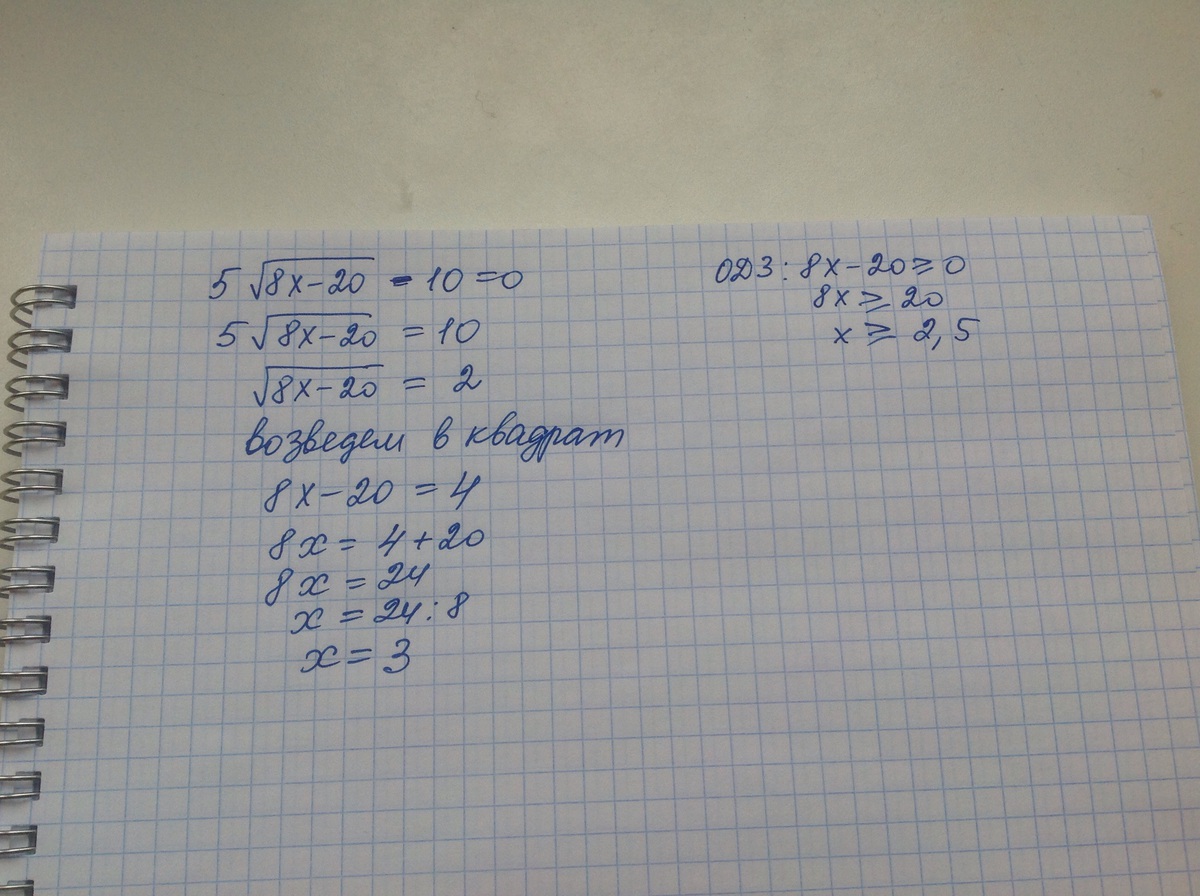 5√(8x-20) - 10 = 0
5√(8x-20) = 10
√(8x-20) = 2
возведем в квадрат
8x-20 = 4
8x = 4+20
8x = 24
x = 24:8
x = 3
ОДЗ: 8x-20⩾0
8x ⩾ 20
x ⩾ 2,5